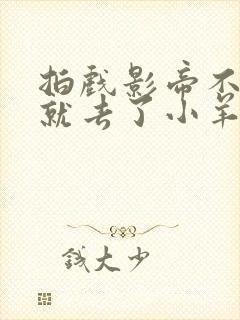 拍戏影帝不
就去了小羊
钱大少